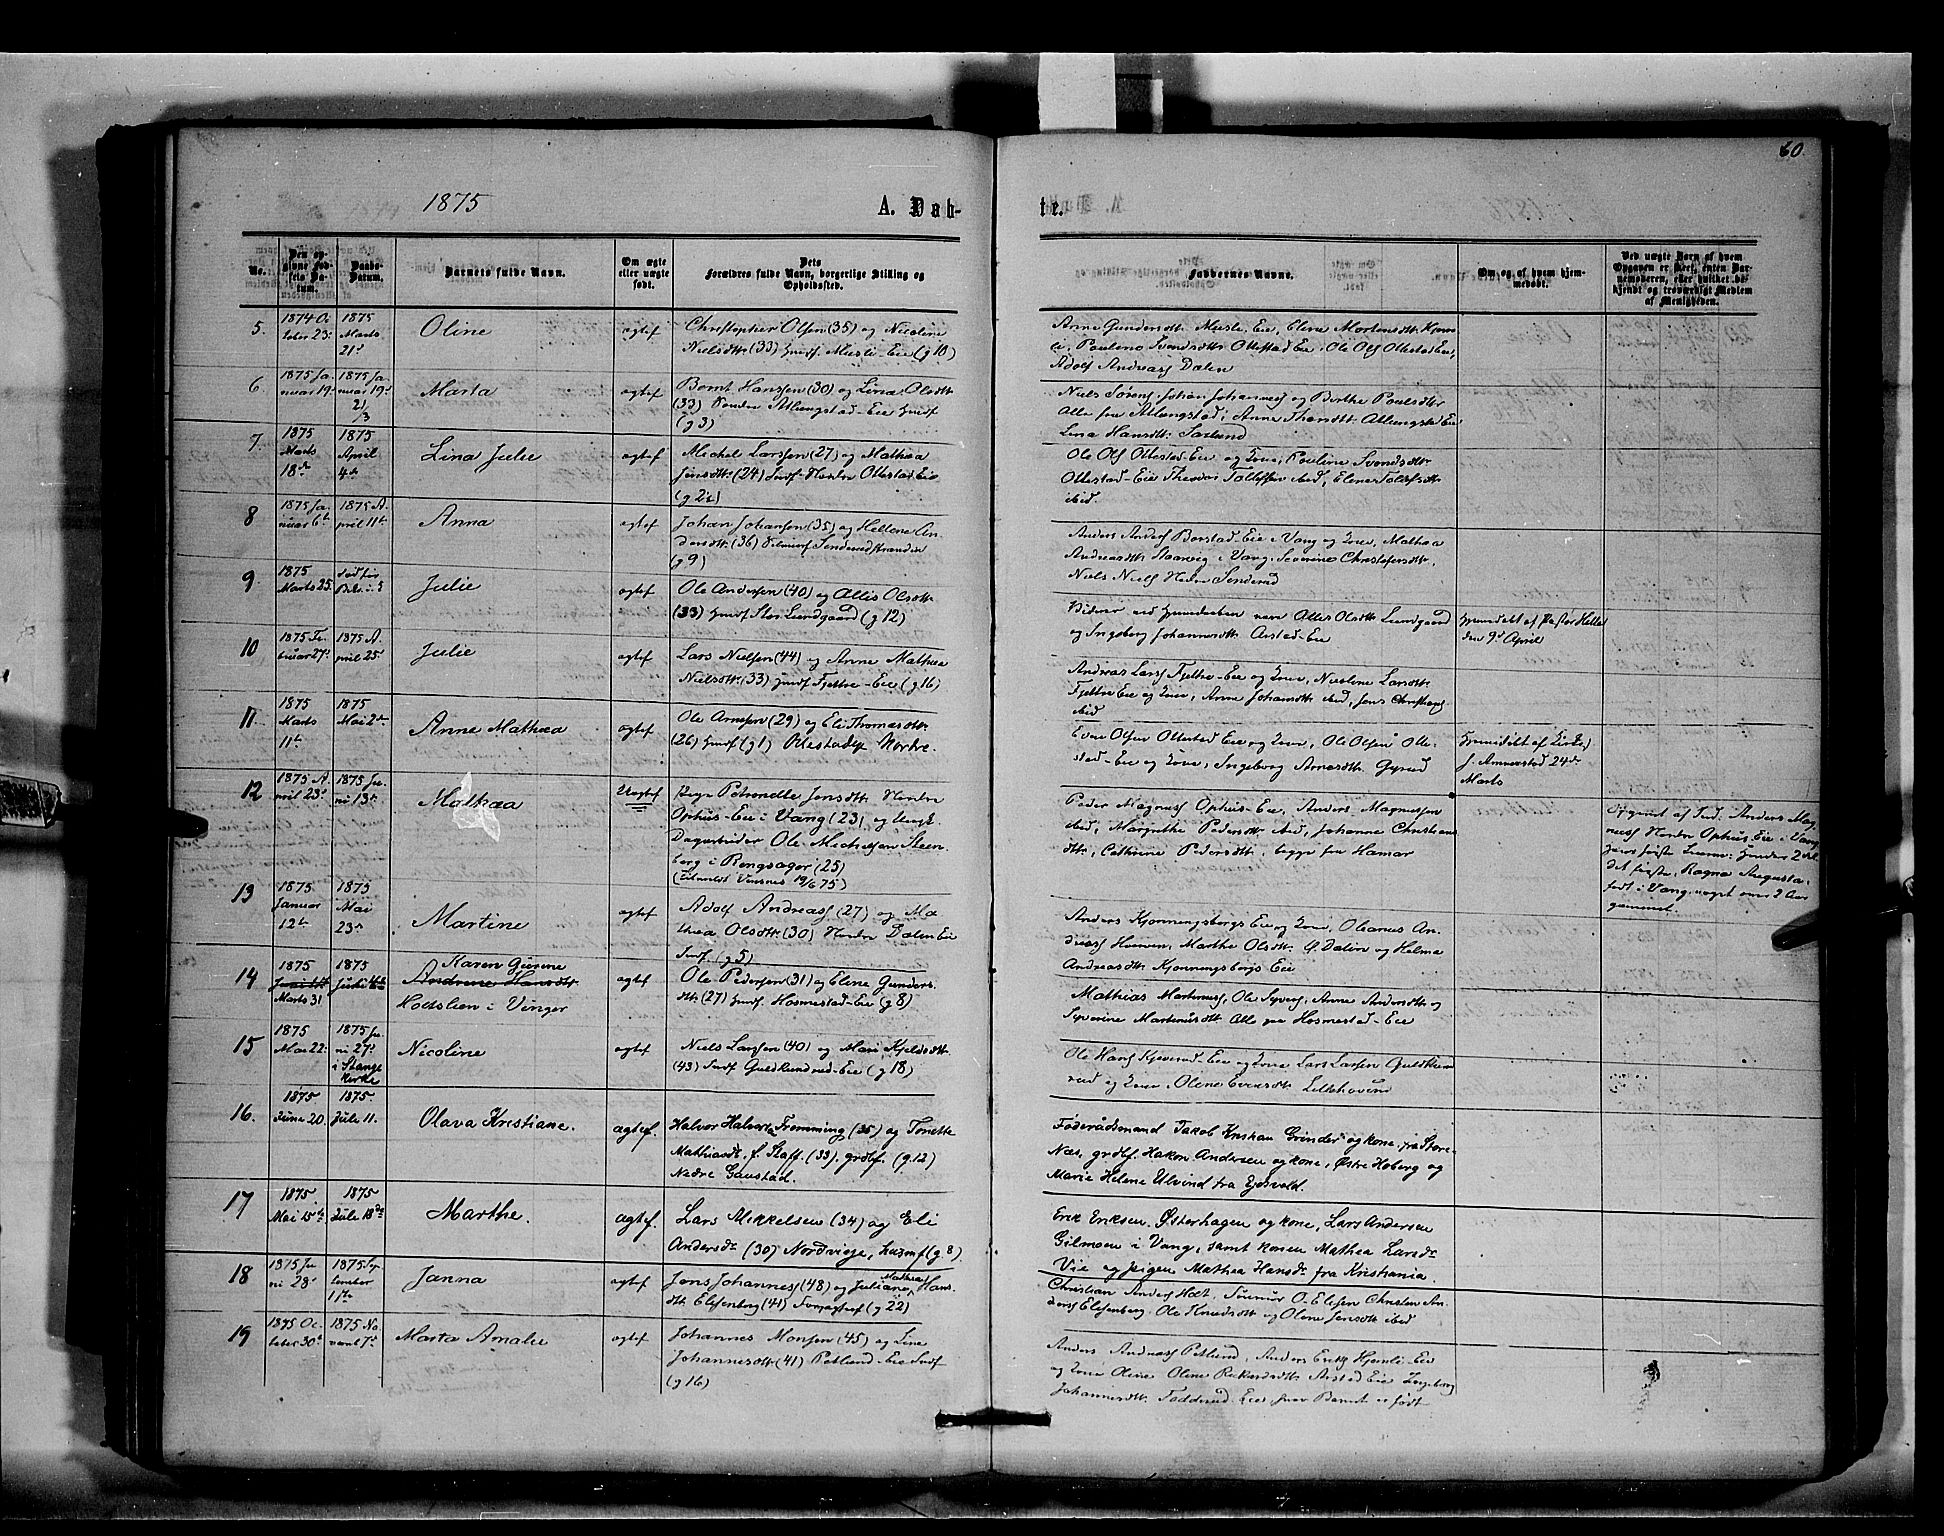 60
1875
A. Døb-
te.
No.
Den op-
givne Fød-
sels Da-
tum.
Daabs-
Datum.
Barnets fulde Navn.
Om ægte
eller uægte
født.
Dets
Forældres fulde Navn, borgerlige Stilling og
Opholdssted.
Faddernes Navne.
Om og af hvem hjem-
medøbt.
Ved uægte Børn af hvem
Opgaven er skeet, enten Bar-
nemoderen, eller hvilket be-
kjendt og troværdigt Medlem
af Menigheden.
5.
1874 Oc
tober 23
1875
Marts
21
Oline
ægtef
Christopher Olsen (35) og Nicoline
Nielsdtr. (33) Husmf. Musli-Eie (g 10)
Anne Gundersdtr Musli, Eie, Elene Mortensdtr
Pauline Svendsdtr Ottestad Eie, Ole Ols Ottestad Eie,
Adolf Andreass Dalen
6
1875 Ja
nuar 19
1875 Ja
nuar 19
21/3
Marta
ægtef
Bernt Hanssen (30) og Lina Olsdtr
(33) Søndre Atlungstad-Eie Husmf
(g 3)
Niels Sørens, Johan Johanness og Berthe Paulsdtr
Alle fra Atlungstad; Anne Atlungstad Eie
Lina Hansdtr.
7.
1875
Marts
18de
1875
April
4de
Lina Julie
ægtef
Michel Larssen (27) og Mathea
Jensdtr (24) Husf. Nordre Ottestad Eie
(g 24)
Ole Ols Ottestad-Eie og Kone, Pauline Svendsdtr
Ottestad-Eie Theodor Tollefsen ibid, Elene Tollefsdtr
ibid.
8
1875 Ja
nuar 6te
1875 A
pril 11te
Anna
ægtef
Johan Johansen (35) og Hellene An
dersdtr (36)
(g 9)
Anders Anders Borstad-Eie i Vang og Kone, Mathea
Andreasdtr i Vang, Severine Christofersdtr.
Niels Niels Nedre
9
1875
Marts 25.
Julie
ægtef
Ole Andersen (40) og Allis Olsdtr
(33) Husmf. Stor Lundgaard (g 12)
Vidner ved Hjemmedaaben vare Alles Olsdtr Lundgaard
og Ingeborg Johannesdtr Arstad-Eie
Hjemmedøbt af Pastor Helle
den 9de April
10
1875 Fe
bruar 27
1875 A
pril 25
Julie
ægtef
Lars Nielsen (44) og Anne Mathea
Nielsdtr. (33) Husmf Fjettre-Eie (g 16)
Andreas Lars Fjettre-Eie og Kone, Nicoline Larsdtr.
Fjettre Eie og Kone, Anne Johansdtr ibid, Jens Christians
ibid
11.
1875
Marts
11te
1875
Mai 2den
Anne Mathea
ægtef
Ole Arnesen (29) og Eli Thomasdtr.
(26) Husmf (g 1) Ottestad Nordre.
Even Olsen Ottestad Eie og Kone, Ole Olsen Otte-
stad-Eie og Kone, Ingeborg Arnesdtr. Gyrud
Hjemmedøbt af Kirkes.
J. Ammerstad 24de
Marts
12
1875 A
pril 23
1875 Ju
ni 13de
Mathea
Uægtef
Pige Petronelle Jensdtr. Nordre
Ophus-Eie i Vang (23) og Ungk.
Dagarbeider Ole Michelsen Steen
berg i Ringsager (25)
19/6 75)
Peder Magnuss Ophus-Eie, Anders Magnussen
ibid, Margrethe Pedersdtr ibid, Johanne Christians
dtr, Cathrine Pedersdtr, begge fra Hamar
Opgivet af Fad. Anders Mag
nuss Nordre Ophus Eie i Vang
hans første Leierm: hendes 2det
det første, Ragna Augusta,
født i Vang, noget over 2 Aar
gammel.
13
1875
Januar
12te
1875
Mai
23de
Martine
ægtef
Adolf Andreass (27) og Ma
thea Olsdtr. (30) Nordre Dalen Eie
Husf (g 5)
Anders Kjonningsbergs Eie og Kone, Oleanus An-
dreass Marthe Olsdtr. Ø Dalen og Helma
Andreasdtr. Kjonningsbergs Eie
14
1875
Marts 31
1875
Juli
Karen Gurine
Andrine Hansdtr
Holtslien i Vinger
ægtef
Ole Pedersen (31) og Eline Gunders
dtr. (27) Husmf. Hosmestad-Eie (g 8)
Mathias Martinuss, Ole Syvers, Anne Andersdtr og
Syverine Martinusdtr alle paa Hosmestad-Eie
15
1875
Mai 22
1875 Ju
ni 27
i Stange
Kirke
Nicoline
ægtef
Niels Larssen (40) og Mari Kjeldsdtr.
(43) Husf Eie (g 18)
Ole Hans Eie og Kone Lars Larsen
rud og Kone, Olene Evensdtr.
16.
1875
Juni 20.
1875
Juli 11.
Olava Kristiane.
ægtef.
Halvor Halvorsen Fremming (35) og Tonette
Mathiasdtr. f. Staff. (33). grdbf. (g. 12)
Nedre Gaustad.
Føderådsmand Jakob Kristian Grinder og kone, fra Store-
Næs, grdbf. Hakon Andersen og kone, Østre Hoberg og
Marie Helene Ulvind fra Ejdsvold.
17
1875
Mai 15te
1875
Juli 18de
Marthe.
ægtef.
Lars Mikkelsen (34) og Eli
Andersdr (30) Nordvieje, husmf (g. 8).
Erik Eriksen Østerhagen og kone, Lars Andersen
Gilmoen i Vang, samt konen Mathea Larsdr.
Vie og pigen Mathea Hansdr. fra Kristiania.
18
1875 Ju
ni 28
1875 Sep
tember
11te
Janna
ægtef
Jens Johanness (48) og Juliane Mathea Hans
dtr Elisenberg (41) (g 22)
Christian Anders Hæt, O. Elisen Christen An
ders Elisenberg, Ole Knudsdtr og Olene Jensdtr ibid
19
1875 Oc
tober 30te
1875 No
vemb 7de
Marta Amalie
ægtef
Johannes Monsen (45) og Line
Johannesdtr. (41) Petlund-Eie Husf
(g 16)
Anders Andreass Petlund, Anders Eriks Hjemli-Eie
og Kone Oline, Oline Rickardsdtr. Arstad Eie Ingeborg
Johannesdtr. Tødderud Eie, hvor Barnet er født